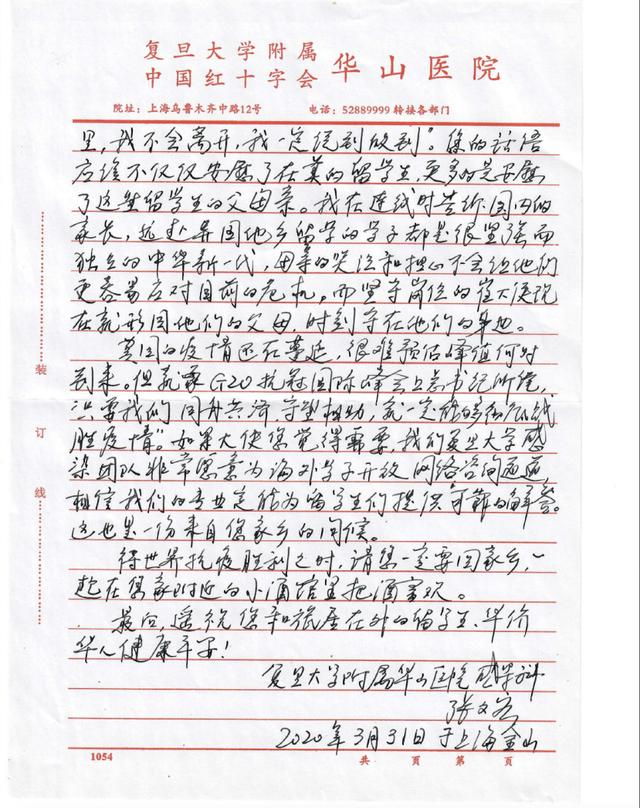 复旦大学附属
中国红十字会 华山医院
院址：上海乌鲁木齐中路12号 电话：52889999 转接各部门
里，我不会离开，我一定说到做到”。您的话语
应该不仅仅安慰了在英的留学生，更多的是安慰
了这些留学生的父母亲。我在连线时告诉国内的
家长，远赴异国他乡留学的学子都是很坚强而
独立的中华新一代，母亲的哭泣和担心不会给他们
更容易应对目前的危机，而坚守岗位的崔大使现
在就形同他们的父母，时刻守在他们的身边。
英国的疫情还在蔓延，很难预估峰值何时
到来。但就象G20抗冠国际峰会上总书记所说，
只要我们同舟共济、守望相助，就一定能够彻底战
胜疫情”。如果大使您觉得需要，我们复旦大学感
染团队非常愿意为海外学子开放网络咨询通道，
相信我们的专业定能为留学生们提供可靠的解答。
这也是一份来自您家乡的问候。
待世界抗疫胜利之时，请您一定要回家乡，一
起在您家附近的小酒馆里把酒言欢。
最后，遥祝您和旅居在外的留学生、华侨
华人健康平安！
复旦大学附属华山医院感染科
张文宏
2020年3月31日于上海金山
装
订
线
1054 共 页 第 页